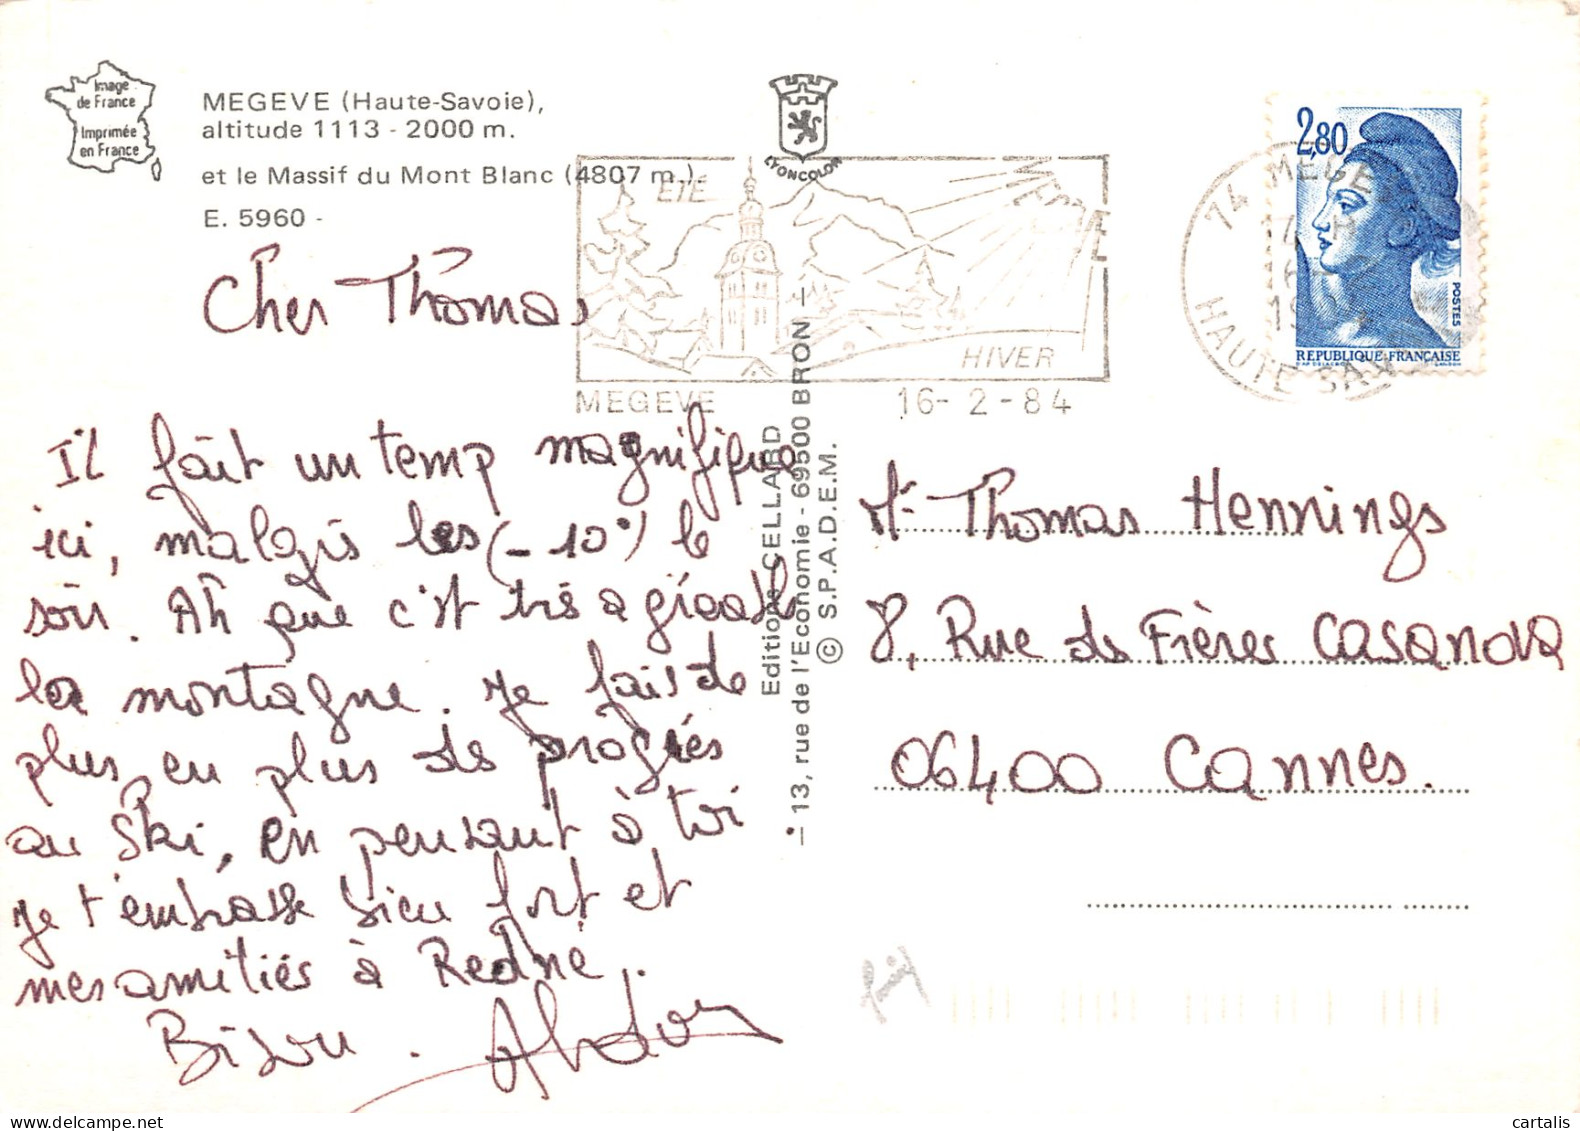 Image
de France
Imprimée
en France
MEGEVE (Haute-Savoie),
altitude 1113 - 2000 m.
et le Massif du Mont Blanc (4807 m.).
E. 5960 -
LYONCOLOR
ETE
MEGEVE
HIVER
MEGEVE 16-2-84
2,80
POSTES
REPUBLIQUE FRANÇAISE
74 MEGEVE
HAUTE SAVOIE
Cher Thomas
Il fait un temp magnifique
ici, malgrés les (-10°) le
soir. Ah que c'est très agréable
la montagne. Je fais de
plus en plus de progrées
au Ski, en pensant à toi
Je t'embrasse bien fort et
mes amitiés à
Bisou.
Editions CELLARD
- 13, rue de l'Economie - 69500 BRON -
© S.P.A.D.E.M.
Mr Thomas Hennings
8, Rue des Frères Casanova
06400 Cannes.
cartalis
delcampe.net